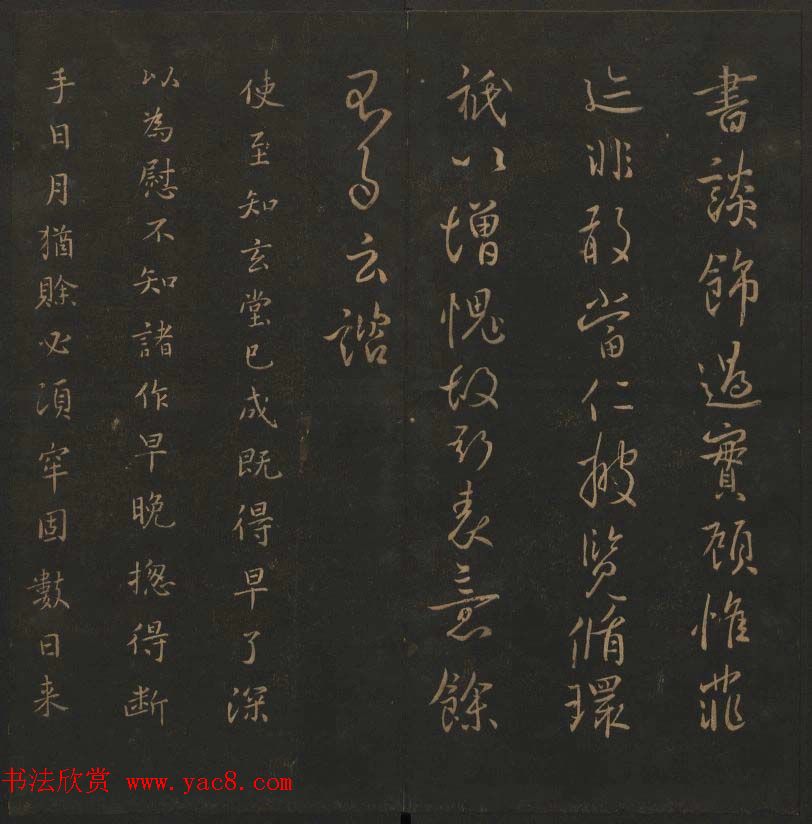 書談飾過實顧惟菲
迹非敢當仁披覽循環
祇以增愧故表意餘
云諮
使至知玄堂已成既得早了深
以為慰不知諸作早晚揔得断
手日月猶賒必須牢固數日来
书法欣赏 www.yac8.com